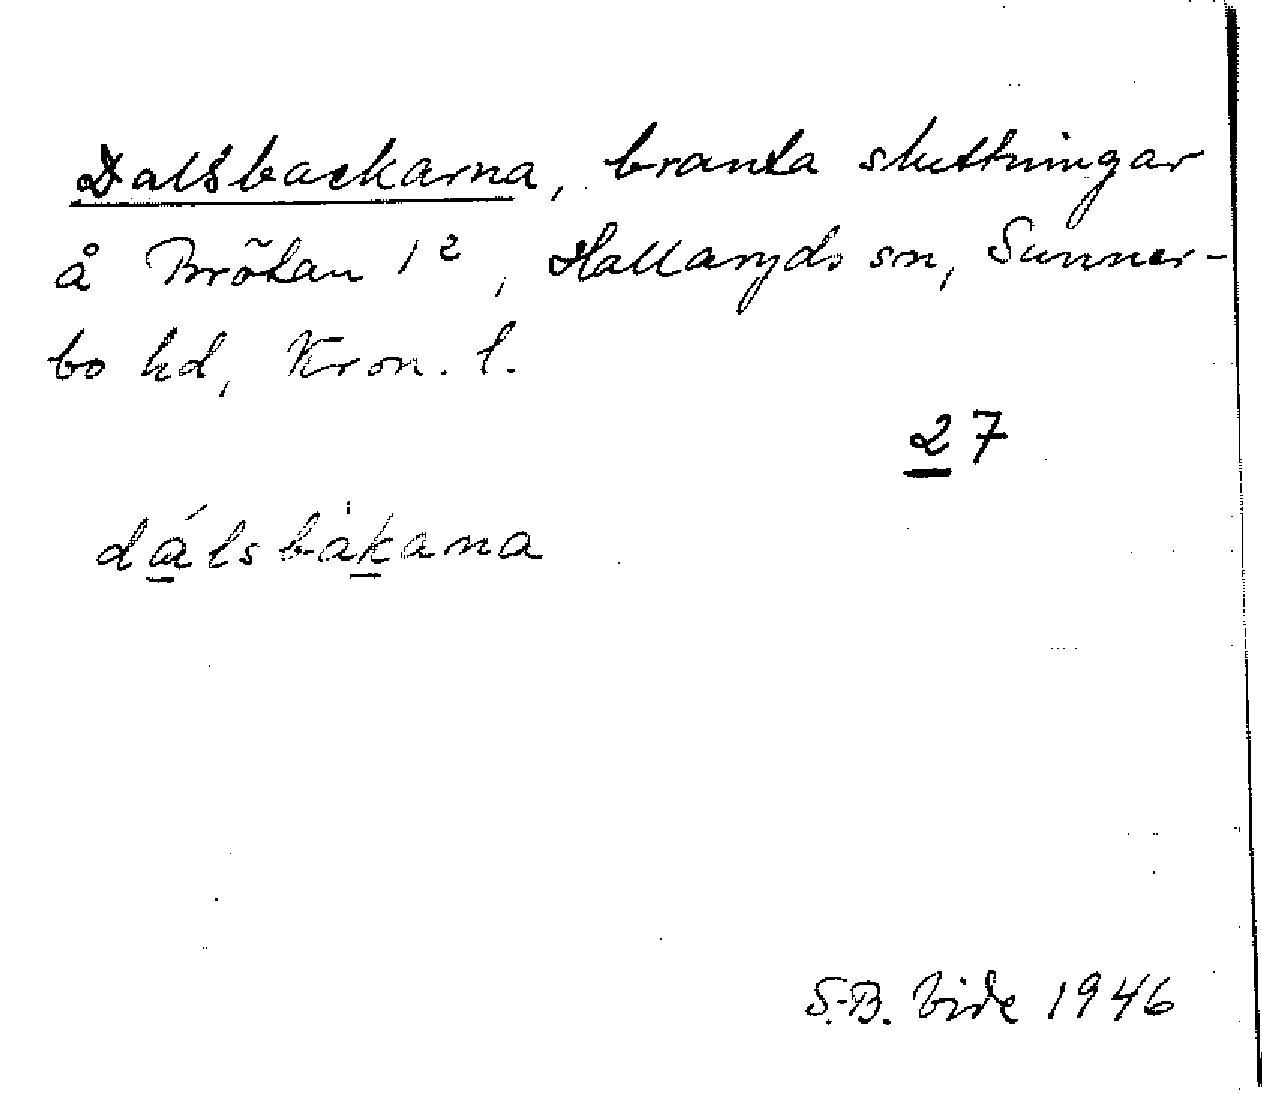 Dalsbackarna, branta sluttningar
å Brötan 1², Hallaryds sn, Sunner-
bo hd, Kron. l.
27
dálsbàkana
S.-B. Vide 1946